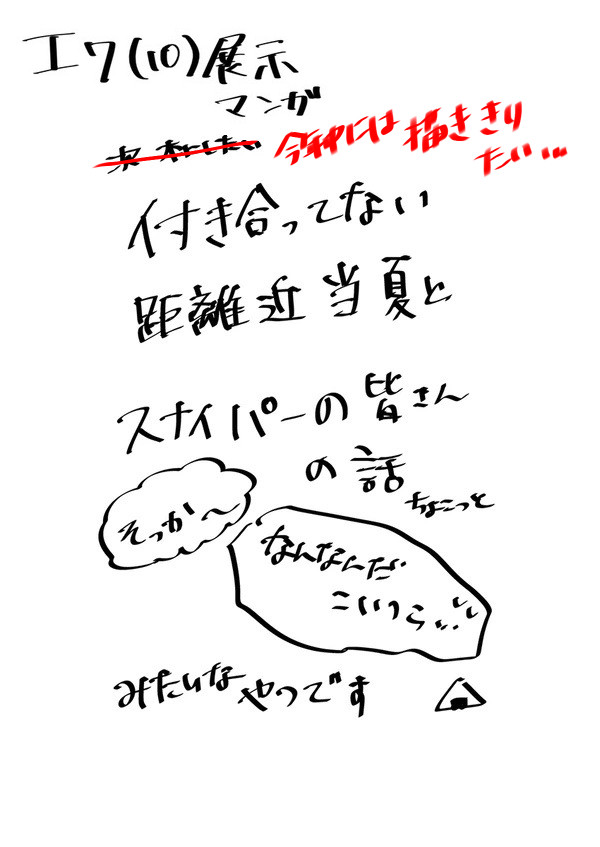 エワ(10)展示
マンガ
今年中には描ききり
たい…
付き合ってない
距離近当夏と
スナイパーの皆さん
の話
ちょこっと
そっか〜
なんなんだ
こいつら…
みたいな
やつです